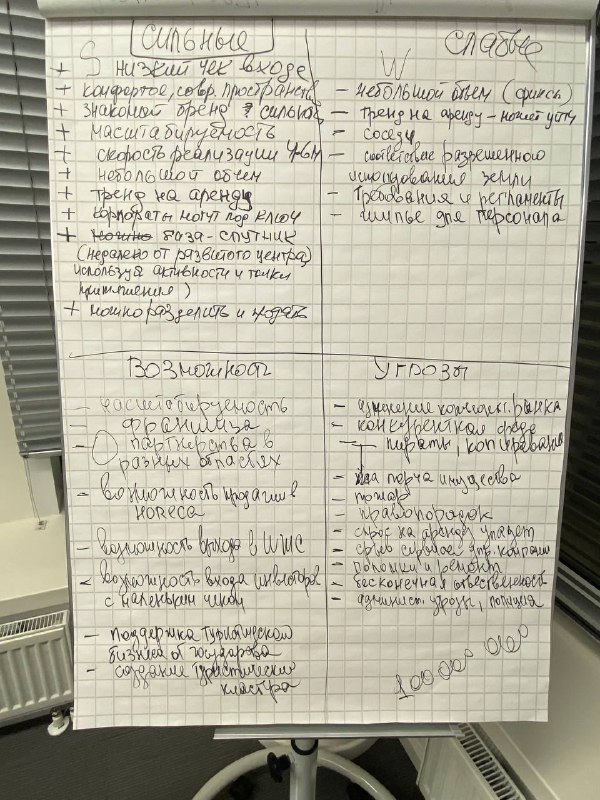 СИЛЬНЫЕ
S
+ НИЗКИЙ ЧЕК ВХОДЕ
+ комфортое, совр. пространств
+ знакомой бренд ? сильность
+ масштабируемость
+ скорость реализации УК
+ небольшой объем
+ тренд на аренду
+ корпораты могут под ключ
+ база-спутник
(недалеко от развитого центра)
используя активности и точки
притяжения)
+ можно разделить и продать
СЛАБЫЕ
W
– небольшой объем (фикс)
– тренд на аренду – может уйти
– соседи
– соответствие разрешенного
использования земли
– Требования и регламенты
– жилье для персонала
ВОЗМОЖНОСТ
– масштабируемость
– франшиза
– партнерства в
разных областях
– возможность продажи в
HORECA
– возможность выхода в
– возможность входа инвесторов
с маленьким чеком
– поддержка туристической
бизнеса от государства
– создание туристический
кластера
УГРОЗЫ
– изменение конъюнкт. рынка
– конкурентная среда
– пираты, копирование
– порча имущества
– пожар
– правопорядок
– спрос на аренду упадет
– упр. компании
– поломки и ремонт
– бесконечная ответственость
– админист. угрозы, полиция